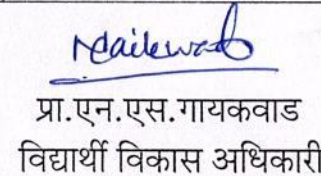 प्रा.एन.एस.गायकवाड
विद्यार्थी विकास अधिकारी